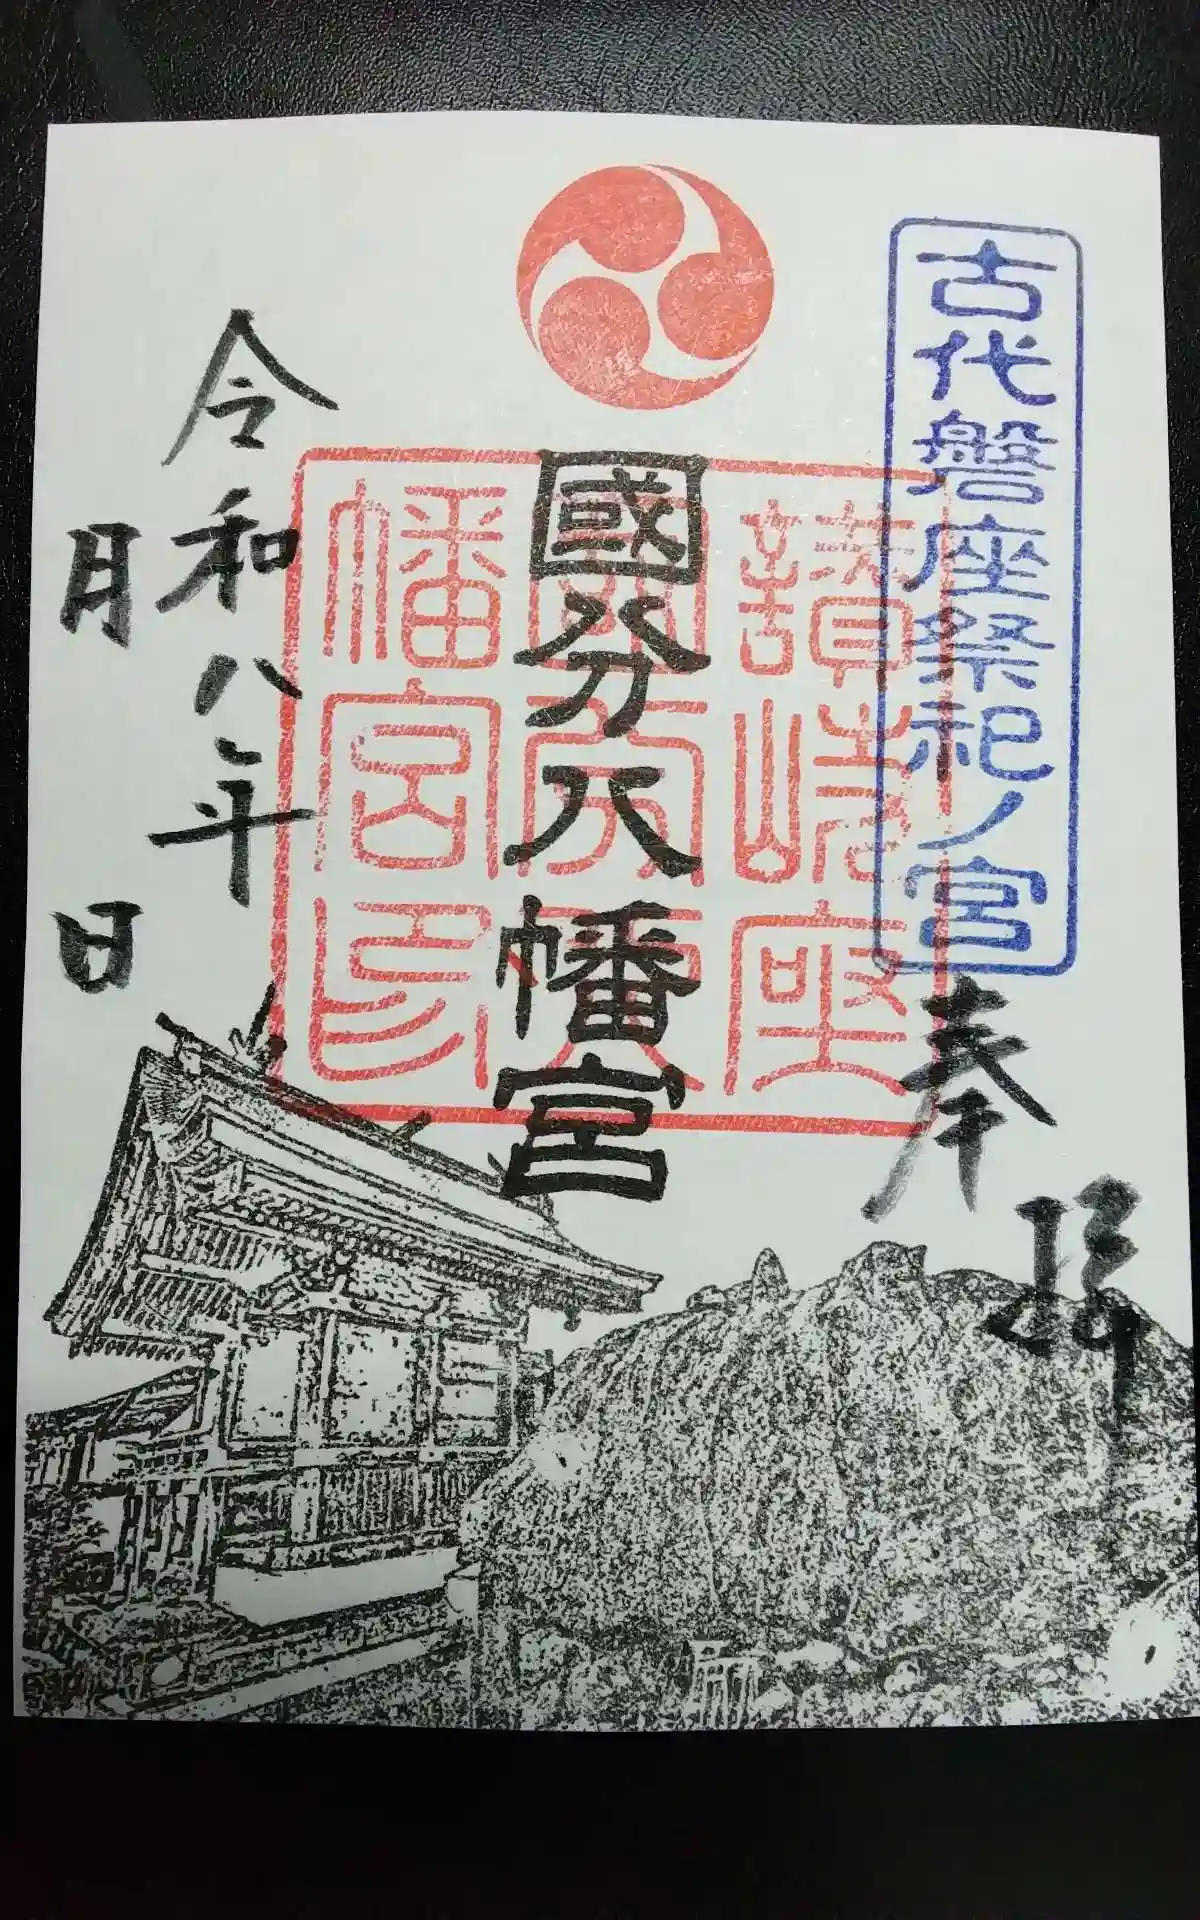 古代磐座祭祀ノ宮
奉拝
讃岐座
國分八
幡宮印
國分八幡宮
令和八年
月 日